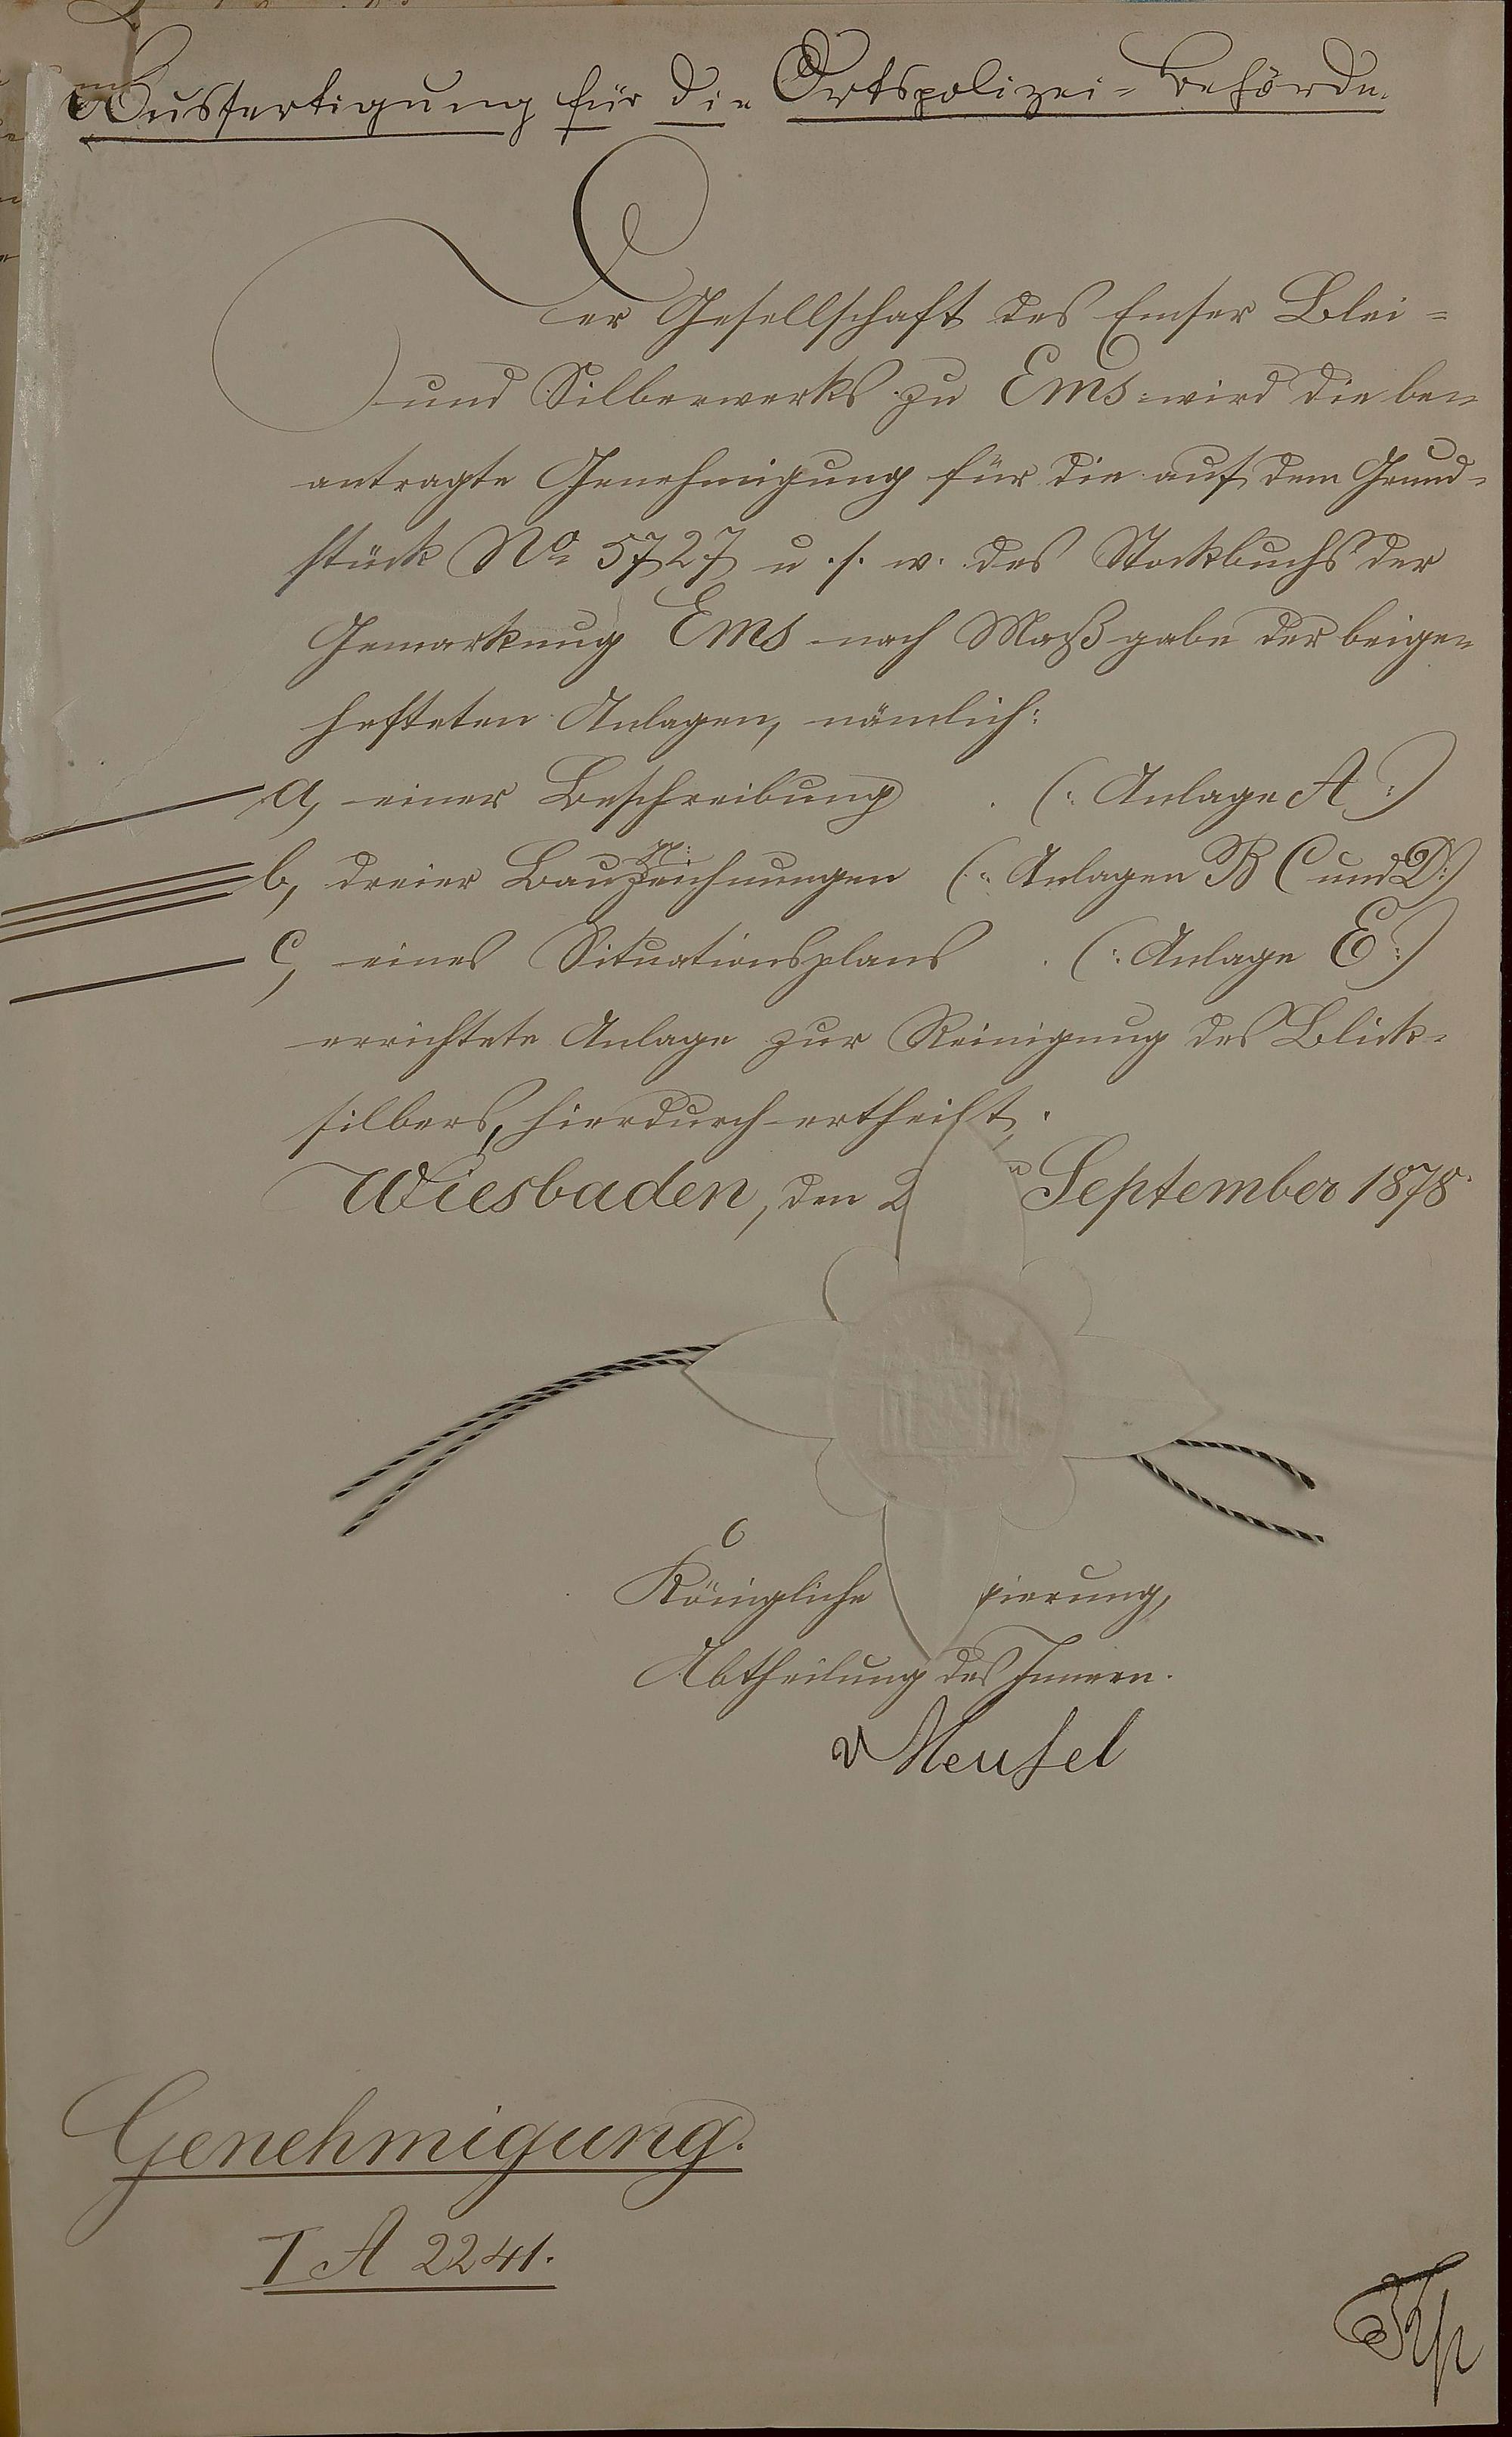 Ausfertigung für die Ortspolizei-Behörde.
Der Gesellschaft des Emser Blei-
und Silberwerks zu Ems wird die be-
antragte Genehmigung für die auf dem Grund-
stück No 5727 u. s. w. des Stockbuchs der
Gemarkung Ems nach Maßgabe der beige-
hefteten Anlagen, nämlich:
a, einer Beschreibung . (: Anlage A :)
b, dreier Bauzeichnungen (: Anlagen B C und D :)
c, eines Situationsplans . (: Anlage E :)
errichtete Anlage zur Reinigung des Blick-
silbers, hierdurch ertheilt.
Wiesbaden, den 2 September 1878.
Königliche gierung,
Abtheilung des Innern.
v Meusel
Genehmigung.
I A 2241.